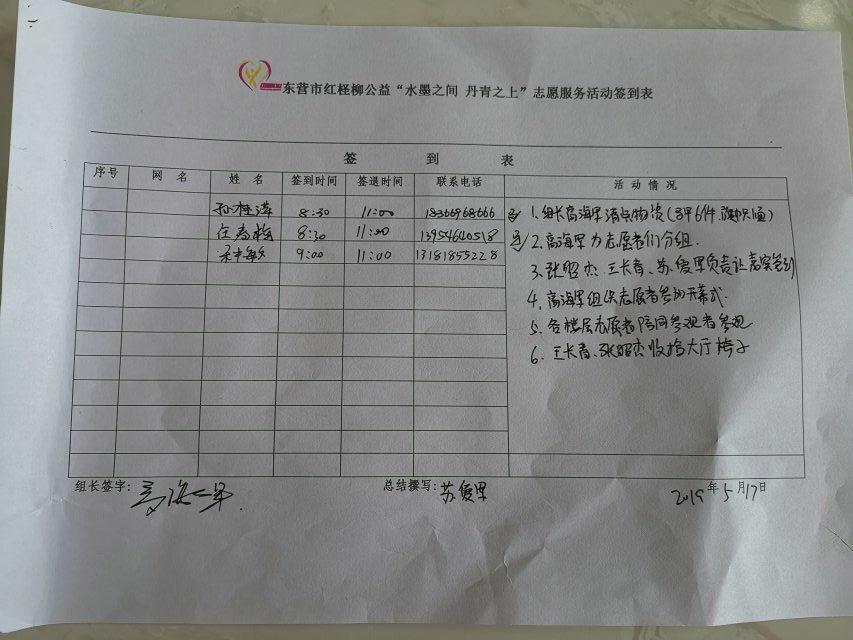 东营市红柽柳公益“水墨之间 丹青之上”志愿服务活动签到表
签 到 表
序号 网 名 姓 名 签到时间 签退时间 联系电话 活 动 情 况
孙桂萍 8:30 11:00 18366968666
任春梅 8:30 11:00 13954640518
敏 9:00 11:00 13181855228
1. 组长高海军清点物资(马甲6件
2. 高海军为志愿者们分组.
3. 张昭杰、王长青、苏爱军负责让嘉宾签到
4. 高海军组织志愿者参加开幕式.
5. 各楼层志愿者陪同参观者参观
6. 王长青、张昭杰收拾大厅椅子
组长签字: 高海军. 总结撰写: 苏爱军 2019年5月17日